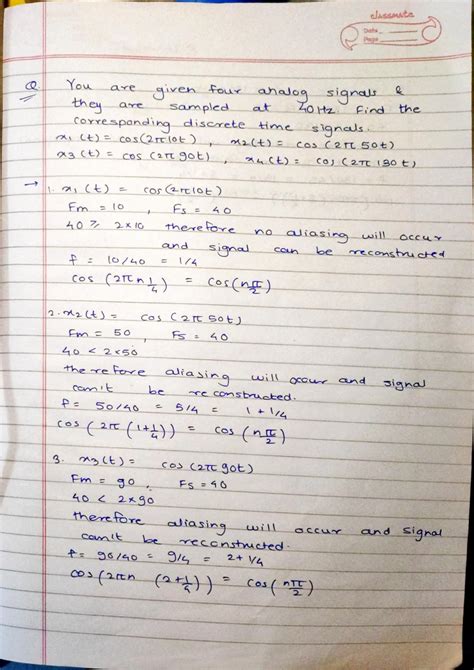 classmate
Date
Page
Q. You are given four analog signals &
they are sampled at 40Hz. Find the
corresponding discrete time signals.
x1(t) = cos(2π10t) , x2(t) = cos (2π 50t)
x3(t) = cos(2π 90t) , x4(t) = cos (2π 130t)
→ 1. x1(t) = cos(2π10t)
Fm = 10 , Fs = 40
40 ≥ 2×10 therefore no aliasing will occur
and signal can be reconstructed
f = 10/40 = 1/4
cos (2πn 1/4) = cos(nπ/2)
2. x2(t) = cos (2π 50t)
Fm = 50 , Fs = 40
40 < 2×50
therefore aliasing will occur and signal
can't be reconstructed.
f = 50/40 = 5/4 = 1 + 1/4
cos (2π (1+1/4)) = cos (nπ/2)
3. x3(t) = cos (2π 90t)
Fm = 90 , Fs = 40
40 < 2×90
therefore aliasing will occur and signal
can't be reconstructed.
f = 90/40 = 9/4 = 2 + 1/4
cos (2πn (2+1/4)) = cos (nπ/2)